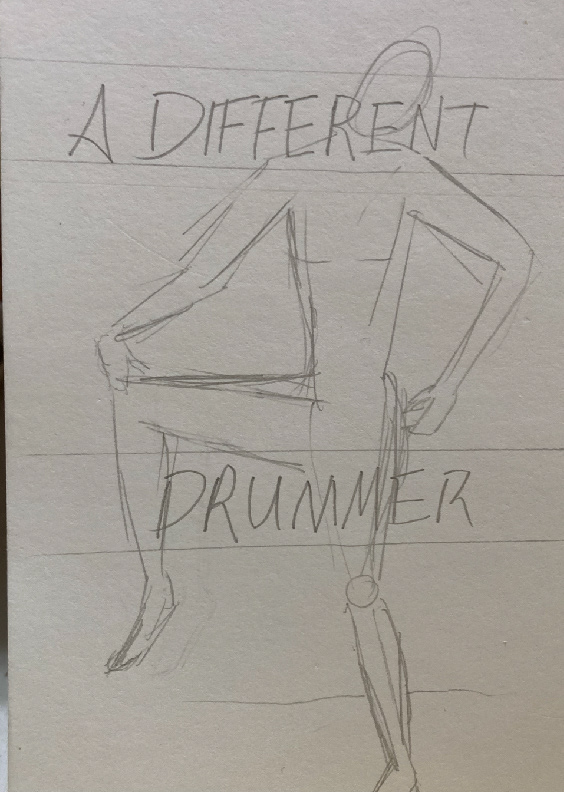 A DIFFERENT
DRUMMER